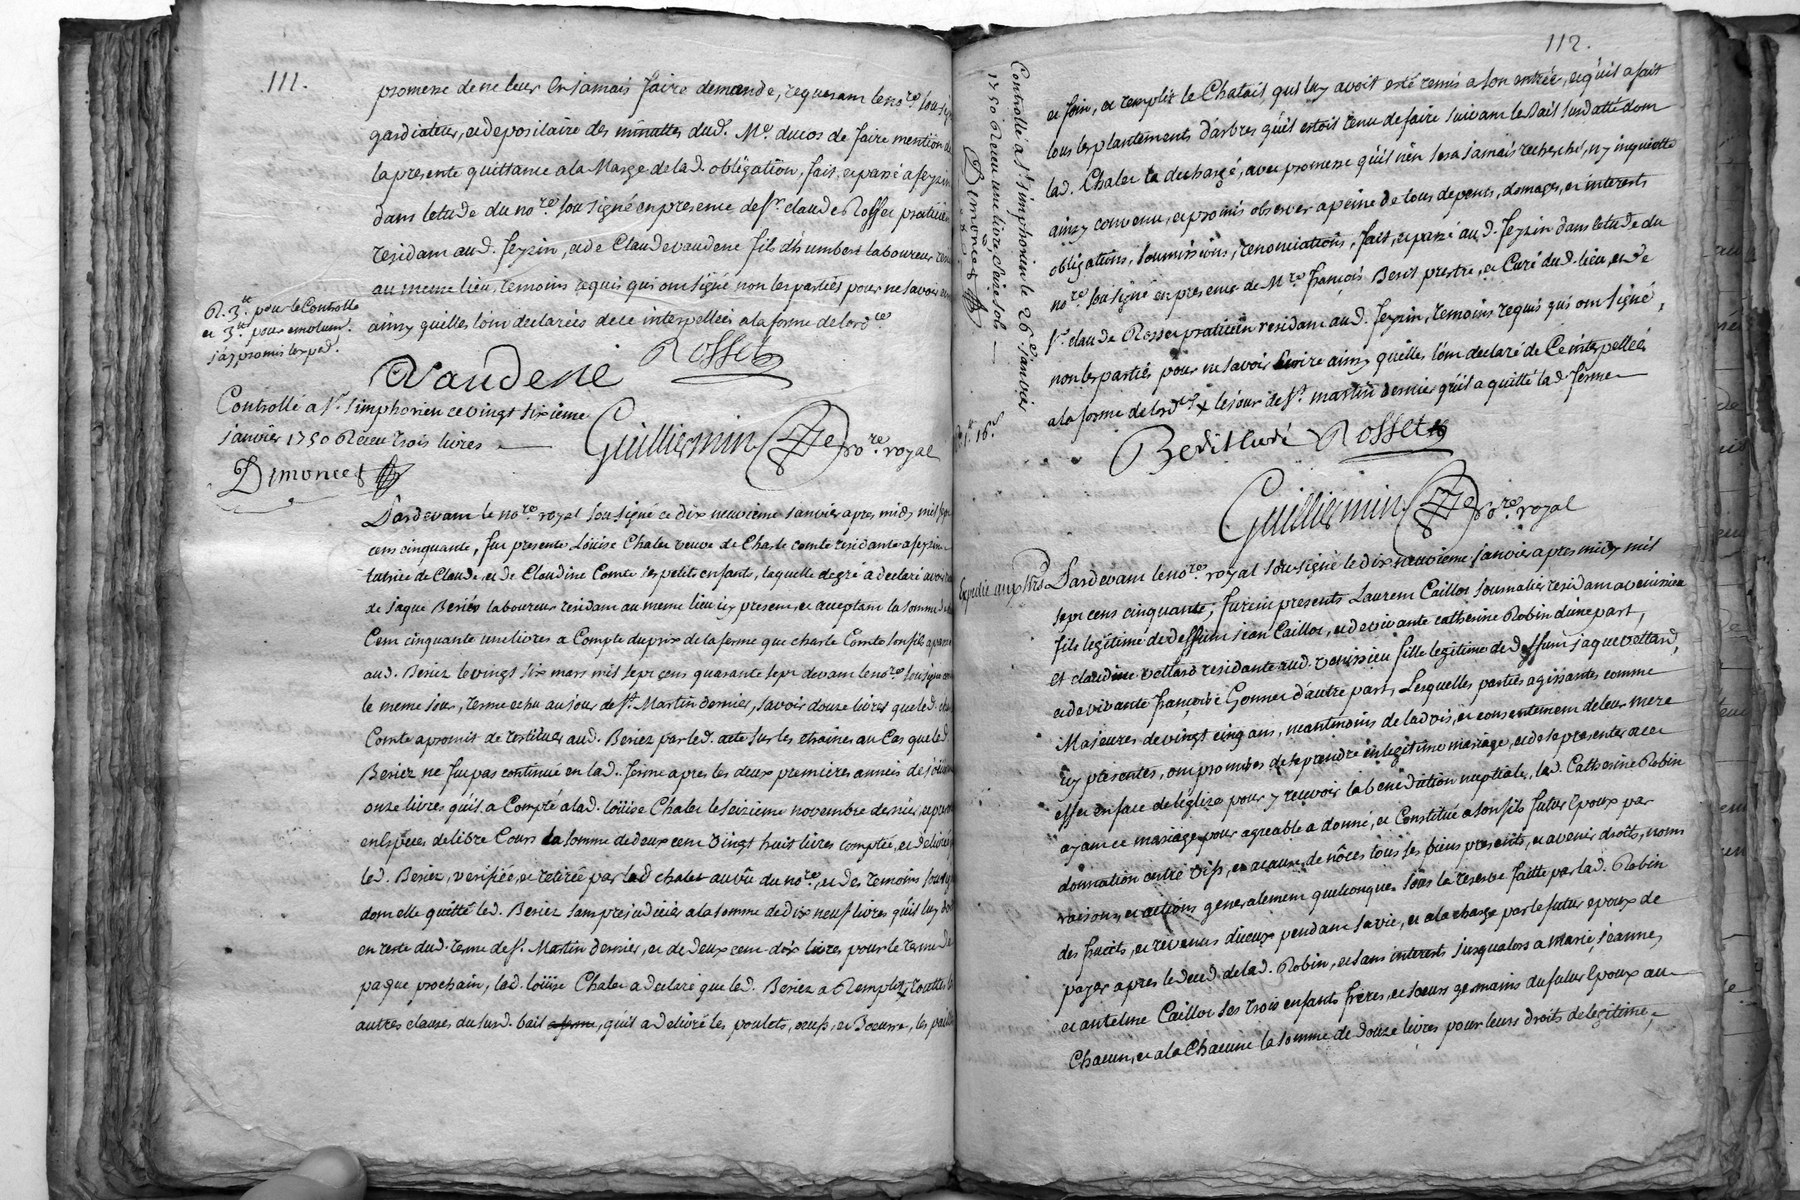 111.
promesse de ne leur en jamais faire demande, requerant le nore sousig
gardiateur, et depositaire des minuttes dud. Me. ducos de faire mention de
la presente quittance a la Marge de lad. obligation, fait, et passé a feyzin
dans letude du nore. sousigné en presence de Sr. claude Rosset praticien
residant aud. feyzin, et de Claude vaudene fils d'humbert laboureur
au meme lieu, temoins requis qui ont signé non les parties pour ne savoir
ainsy quelles l'ont declarées de ce interpellées a la forme de lordce
R. 3tt. pour le Controlle
et 3tt pour emolum.
j'ay promis lexped.
Vaudene Rosset
Controllé a St. simphorien ce vingt sixieme
janvier 1750 Receu trois livres
Dimoncet
Guilliermin nore. royal
Pardevant le nore. royal sousigné ce dix neuvieme janvier apres midy mil sept
cens cinquante, fut presente Loüise Chalet veuve de Charle comte residante a feyzin
tutrice de Claude, et de Claudine Comte ses petits enfants, laquelle de gré a declaré avoir
de jaque Beriés laboureur residant au meme lieu icy present, et acceptant la somme de
Cent cinquante une livres a Compte du prix de la ferme que charle Comte son fils a passé
aud. Beriez le vingt six mars mil sept cens quarante sept devant le nore sousigné
le meme jour, terme echu au jour de St. Martin dernier, savoir douze livres que led.
Comte a promit de restituer aud. Beriez par led. acte sur les etraines au Cas que led.
Beriez ne fut pas continué en lad. ferme apres les deux premieres années de joüissance
onze livres qu'il a Compté a lad. loüise Chalet le seizieme novembre dernier, et present
en espèces de libre Cours la somme de deux cent vingt huit livres comptée, et delivrée
led. Beriez, verifiée, et retirée par lad chalet au vû du nore, et des temoins sousig
dont elle quitte led. Beriez sans prejudicier a la somme de dix neuf livres qu'il luy doit
en reste dud. terme de St. Martin dernier, et de deux cent dix livres pour le terme de
paque prochain, lad. loüise Chalet a declaré que led. Beriez a Remplit toutes les
autres clauses du susd. bail a ferme, qu'il a delivré les poulets, oeufs, et Boeurre, les pailles
112.
Controllé a St. simphorien le 26e janvier
1750 Receu une livre seize sols
Dimoncet
et foin, et remplit le Chatait qui luy avoit esté remis a son entrée, et qu'il a fait
tous les plantements d'arbres qu'il estoit tenu de faire suivant le bail susdatté dont
lad. Chalet la dechargé, avec promesse qu'il n'en sera jamais recherché, ny inquiette
ainsy convenu, et promis observer a peine de tous depents, domages, et interests
obligations, soumissions, renonciations, fait, et passé aud. feyzin dans letude du
nore. sousigné en presence de Mre françois Berit prestre, et Curé dud. lieu, et de
Sr. claude Rosset praticien residant aud. feyzin, temoins requis qui ont signé,
non les parties pour ne savoir Ecrire ainsy quelles l'ont declaré de Ce interpellées
a la forme de lordce x le jour de St. martin dernier qu'il a quitté lad ferme
R. 1tt 16s
Berit Curé Rosset
Guilliermin nore. royal
Expedié aux mrs
Pardevant le nore. royal sousigné le dix neuvieme janvier apres midy mil
sept cens cinquante, furent presents Laurent Caillot journalier residant a venissieu
fils legitime de deffunt jean Caillot, et de vivante catherine Robin d'une part,
et claudine vettard residante aud. venissieu fille legitime de deffunt jaque vettard,
et de vivante françoise Gonnet d'autre part, Lesquelles parties agissantes comme
Majeures de vingt cinq ans, neantmoins de l'advis, et consentement de leur mere
icy presentes, ont promises de se prendre en legitime mariage, et de se presenter a ce
effet en face de l'eglize pour y recevoir la benediction nuptiale, lad. Catherine Robin
ayant ce mariage pour agreable a donné, et Constitué a son fils futur Epoux par
donnation entre vifs, et a cause de nôces tous ses biens presents, et avenir droits, noms
raisons, et actions generalement quelconques sous la reserve faitte par lad. Robin
des fruits, et revenus d'iceux pendant sa vie, et a la charge par le futur epoux de
payer apres le deced de lad. Robin, et sans interest jusqualors a marie, jeanne,
et antelme Caillot ses trois enfants freres, et soeurs germains du futur Epoux au
Chacun, et a la Chacune la somme de douze livres pour leurs droits de legitime,